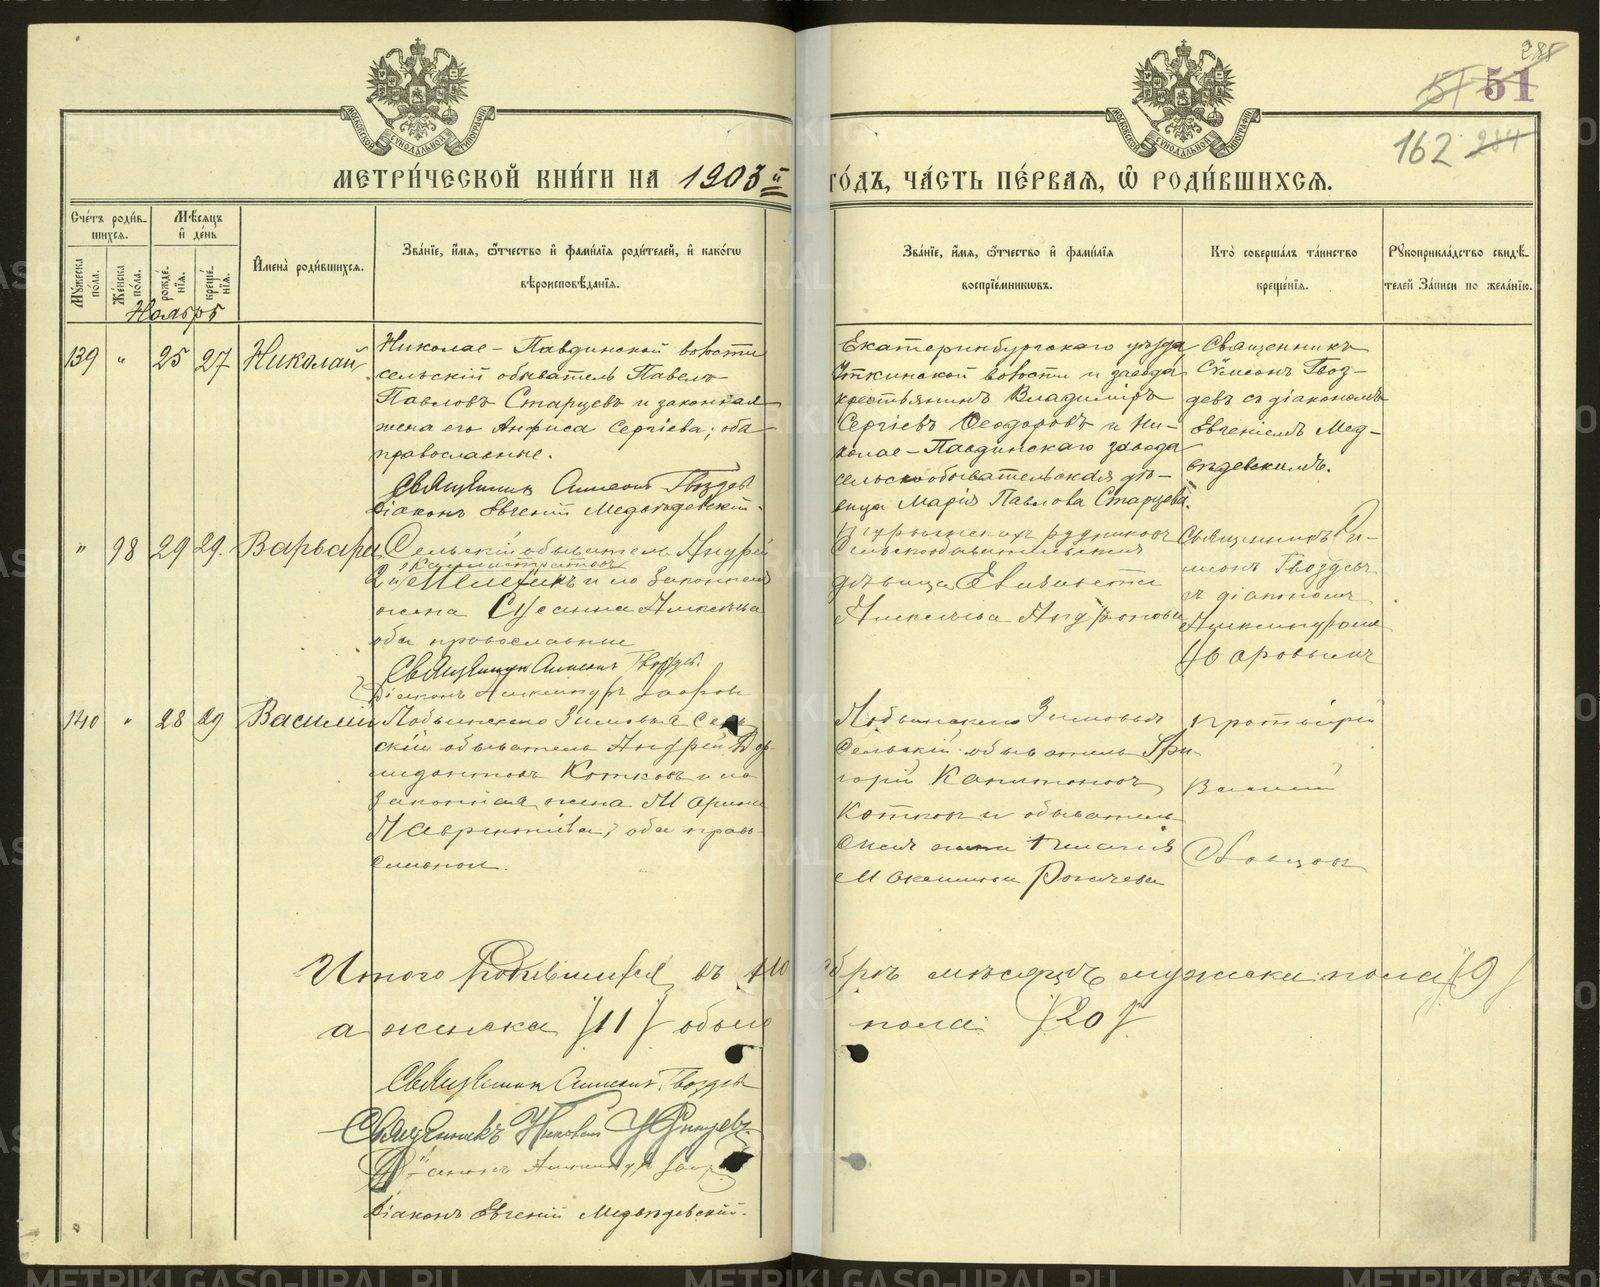 285
51 51
162 284
МЕТРИ́ЧЕСКОЙ КНИ́ГИ НА 1903й ГО́ДЪ, ЧА́СТЬ ПЕ́РВАЯ, Ѽ РОДИ́ВШИХСЯ.
Сче́тъ роди́в-
шихся.
Мѣ́сяцъ
и҆ де́нь
Мꙋ́жеска по́ла.
Же́нска по́ла.
рожде́нїя.
креще́нїя.
И҆мена̀ роди́вшихся.
Зва́нїе, и҆́мя, ѻ҆́тчество и҆ фами́лїя роди́телей, и҆ како́гѡ
вѣроисповѣ́данїѧ.
Зва́нїе, и҆́мя, ѻ҆́тчество и҆ фами́лїя
воспрїе́мникѡвъ.
Кто̀ соверша́лъ та́инство
креще́нїя.
Рꙋкоприкла́дство свидѣ́-
телей За́писи по жела́нїю.
Ноябрь
139 " 25 27 Николай
Николае-Павдинской волости
сельскій обыватель Павелъ
Павловъ Старцевъ и законная
жена его Анфиса Сергіева; оба
православные.
Священник Симеонъ Гвоздев
Діаконъ Евгеній Медвѣдевскій.
Екатеринбургскаго уѣзда
Уткинской волости и завода
крестьянинъ Владиміръ
Сергіевъ Ѳеодоровъ и Ни-
колае-Павдинскаго завода
сельскообывательская дѣ-
вица Марія Павлова Старцева.
Священникъ
Сѵмеонъ Гвоз-
девъ съ діакономъ
Евгеніемъ Мед-
вѣдевскимъ.
" 98 29 29. Варвара
Сельскій обыватель Андрей
и его законная
жена Сусанна Алексѣева
оба православные
Священник Симеонъ Гвоздев.
Діаконъ Александръ
рудниковъ
Сельскообывательская
дѣвица Елизавета
Алексѣева Андронова
Священникъ Си-
меонъ Гвоздевъ
съ діакономъ
Александромъ
140 " 28 29 Василій
Зимовья Сель-
скій обыватель Андрей Дор-
мидонтовъ Котковъ и его
законная жена Марина
Лаврентіева, оба право-
славные.
Зимовья
Сельскій обыватель Гри-
горій Капитоновъ
Котковъ и обыватель-
ская жена
Максимова
Протоіерей
Василій
Итого родившихся въ ноябрѣ мѣсяцѣ мужеска пола /9/
а женска /11/ обоего пола /20/
Священник Симеонъ Гвоздев
Священникъ Николай
Діаконъ Александръ
Діаконъ Евгеній Медвѣдевскій.
METRIKI.GASO-URAL.RU